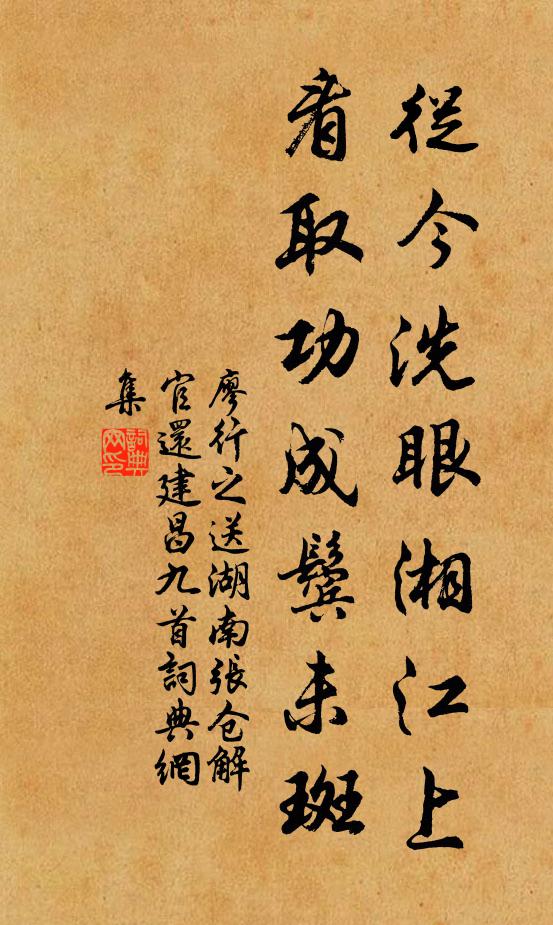 從今洗眼湘江上
看取功成鬢未斑
廖行之送湖南張仓解
官還建昌九首詞典網
集
詞典
网印